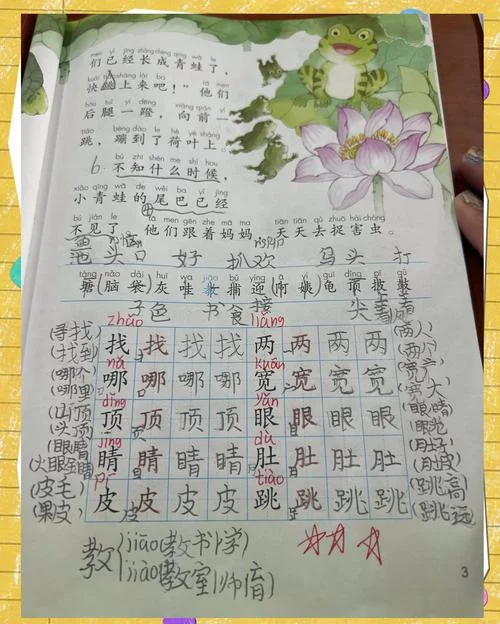 men yǐ jīng zhǎng chéng qīng wā le
们已经长成青蛙了，
kuài shàng lái ba tā men
快上来吧！”他们
hòu tuǐ yì dēng xiàng qián yí
后腿一蹬，向前一
tiào bèng dào le hé yè shàng
跳，蹦到了荷叶上。
bù zhī shén me shí hou
6. 不知什么时候，
xiǎo qīng wā de wěi ba yǐ jīng
小青蛙的尾巴已经
bú jiàn le tā men gēn zhe mā ma tiān tiān qù zhuō hài chóng
不见了。他们跟着妈妈，天天去捉害虫。
池 头 口 好 扒 欢 马 头 打
táng nǎo dài huī wa jiāo bǔ yíng ā yí guī dǐng pī gǔ
塘(脑 袋)灰 哇 教 捕 迎(阿 姨)龟 顶 披 鼓
子 色 书 食 接 尖 着
zhǎo liǎng
寻找 (找到) 找 找 找 找 两 两 两 两 (两人) (两个)
nǎ kuān
(哪个) (哪里) 哪 哪 哪 哪 宽 宽 宽 宽 (宽大)
dǐng yǎn
(山顶) (头顶) 顶 顶 顶 顶 眼 眼 眼 眼 (眼睛)
jīng dù
(眼睛) 睛 睛 睛 睛 肚 肚 肚 肚 (肚子) (肚皮)
pí tiào
(皮毛) (果皮) 皮 皮 皮 皮 跳 跳 跳 跳 (跳高) (跳远)
教 jiāo(教书)(学)
jiào(教室)(师)(育)
3